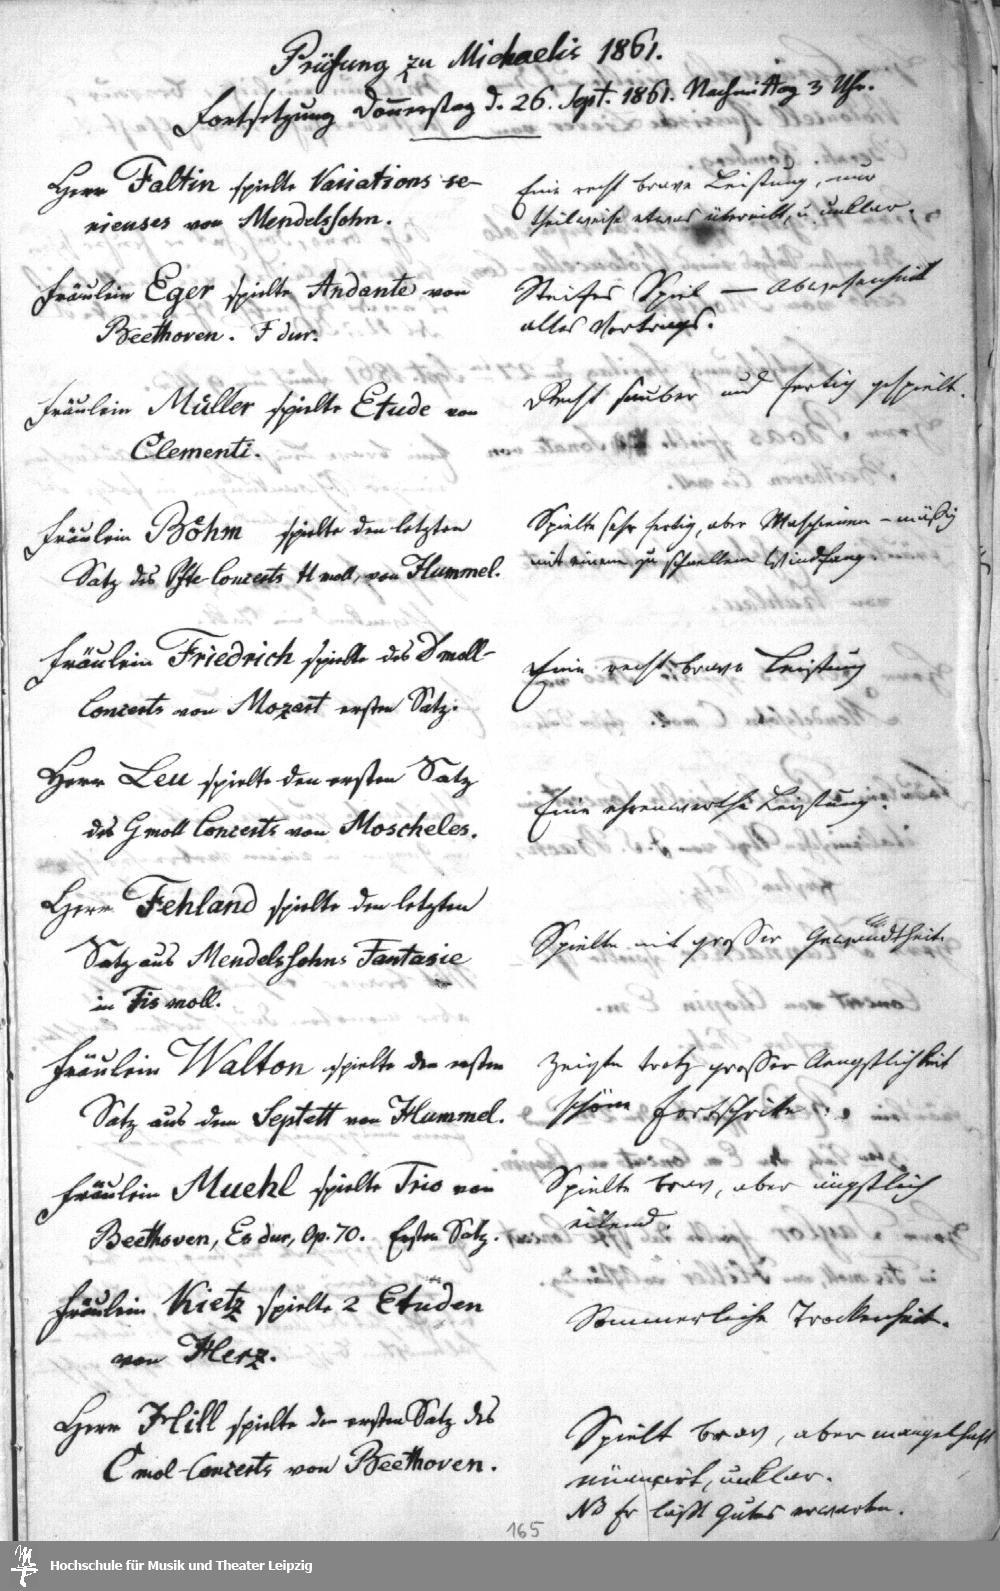 Prüfung zu Michaelis 1861.
Fortsetzung Donnerstag d. 26. Sept. 1861. Nachmittag 3 Uhr.
Herr Faltin spielte Variations se-
rieuses von Mendelssohn.
Eine recht brave Leistung, nur
theilweise etwas übereilt, u. unklar.
Fräulein Eger spielte Andante von
Beethoven. F dur.
Steifes Spiel — Abwesenheit
alles Vortrags.
Fräulein Müller spielte Etude von
Clementi.
Recht sauber und fertig gespielt.
Fräulein Böhm spielte den letzten
Satz des Pfte-Concerts H moll, von Hummel.
Spielte sehr fertig, aber Maschienen-mäßig
mit einem zu schnellem Windfang.
Fräulein Friedrich spielte des D moll-
Concerts von Mozart ersten Satz.
Eine recht brave Leistung
Herr Leu spielte den ersten Satz
des G moll Concerts von Moscheles.
Eine ehrenwerthe Leistung.
Herr Fehland spielte den letzten
Satz aus Mendelssohns Fantasie
in Fis moll.
Spielte mit grosser Gewandtheit.
Fräulein Walton spielte den ersten
Satz aus dem Septett von Hummel.
Zeigte trotz grosser Aengstlichkeit
schöne Fortschritte.
Fräulein Muehl spielte Trio von
Beethoven, Es dur, Op. 70. Ersten Satz.
Spielte brav, aber ängstlich
eilend.
Fräulein Kietz spielte 2 Etuden
von Herz.
Sommerliche Trockenheit.
Herr Hill spielte den ersten Satz des
C mol-Concerts von Beethoven.
Spielt brav, aber mangelhaft
nüancirt, unklar.
NB Er läßt Gutes erwarten.
165
Hochschule für Musik und Theater Leipzig